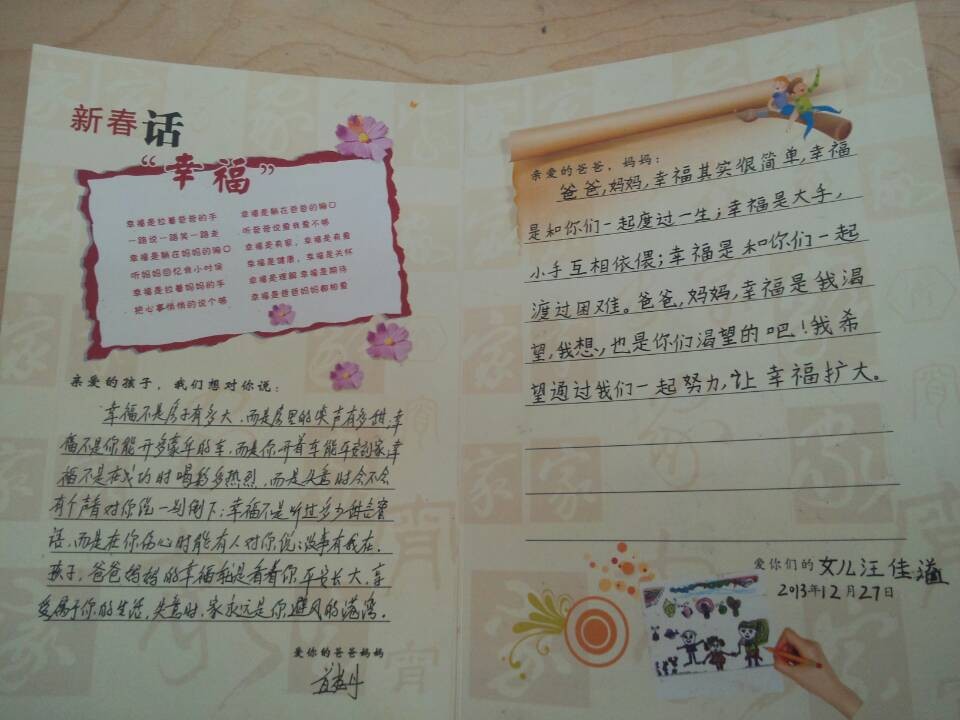 新春话
“幸福”
幸福是拉着爸爸的手
一路说一路笑一路走
幸福是躺在妈妈的胸口
听妈妈回忆我小时候
幸福是拉着妈妈的手
把心事悄悄的说个够
幸福是躺在爸爸的胸口
听爸爸说爱我爱不够
幸福是有家，幸福是有爱
幸福是健康，幸福是关怀
幸福是理解幸福是期待
幸福是爸爸妈妈都相爱
亲爱的孩子，我们想对你说：
幸福不是房子有多大，而是房里的笑声有多甜；幸
福不是你能开多豪华的车，而是你开着车能平安到家；幸
福不是在成功时喝彩多热烈，而是失意时会不会
有个声音对你说：别倒下；幸福不是听过多少甜言蜜
语，而是在你伤心时能有人对你说：没事有我在。
孩子，爸爸妈妈的幸福就是看着你平安长大，享
受属于你的生活，失意时，家永远是你避风的港湾。
爱你的爸爸妈妈
亲爱的爸爸，妈妈：
爸爸，妈妈，幸福其实很简单，幸福
是和你们一起度过一生；幸福是大手，
小手互相依偎；幸福是和你们一起
渡过困难。爸爸，妈妈，幸福是我渴
望，我想，也是你们渴望的吧！我希
望通过我们一起努力，让幸福扩大。
爱你们的女儿汪佳
2013年12月27日